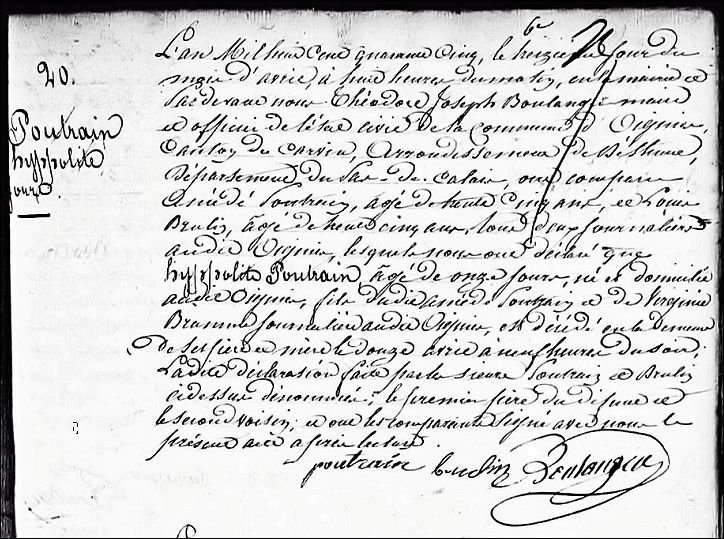 20.
Poutrain
hyppolite
L'an Mil huit Cent quarante Cinq, le treizième Jour du
mois d'avril, à heures du matin, en la mairie et
Par devant nous Théodore Joseph Boulanger maire
et officier de l'état civil de la commune d'Oignies,
Canton de Carvin, Arrondissement de Béthune,
Département du Pas-de-Calais, ont comparu
Amédé Poutrain, agé de trente Cinq ans, et Louis
Brulin, agé de trente cinq ans, tous deux Journaliers
audit Oignies, lesquels nous ont déclaré que
hyppolite Poutrain, agé de onze Jours, né et domicilié
audit Oignies, fils dudit amédé Poutrain et de Virginie
Journalière audit Oignies, est décédé en la Demeure
De ses père et mère le douze avril à neuf heures du soir;
Ladite déclaration faite par les sieurs Poutrain et Brulin
cidessus dénommés; le premier père du défunt et
le second voisin; et ont les comparants signé avec nous le
présent acte après lecture.
poutrain brulin Boulanger